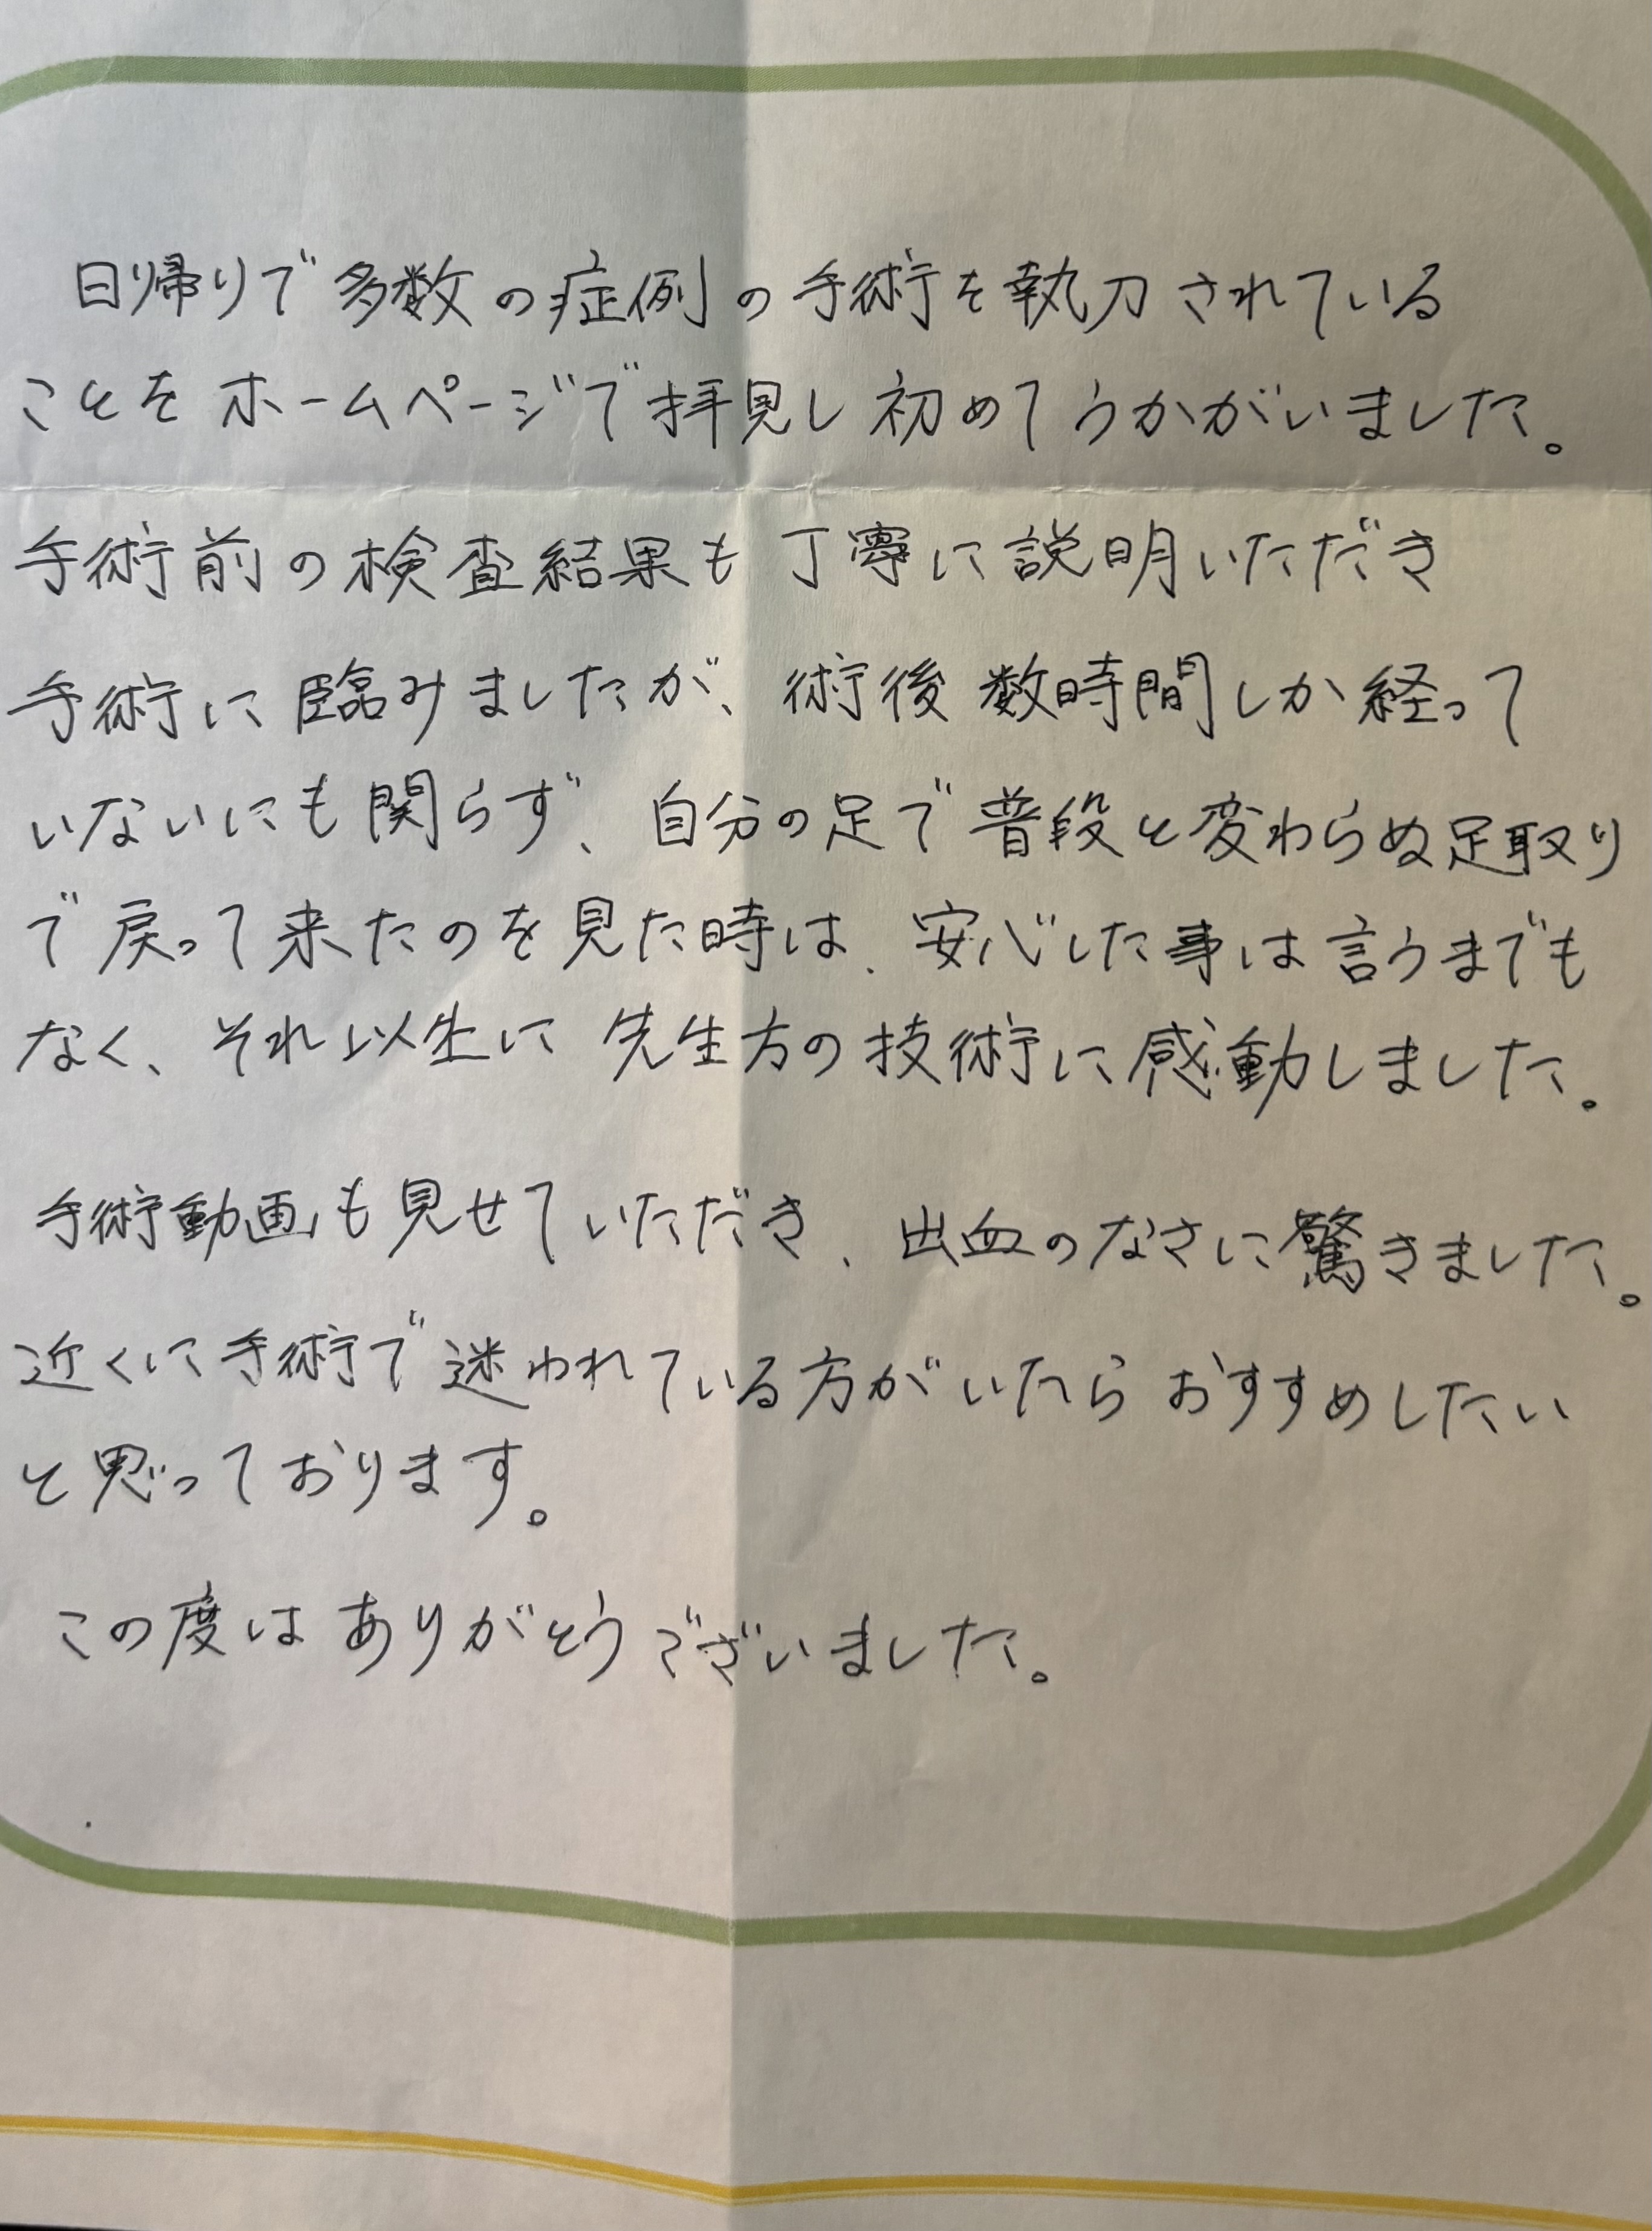 日帰りで多数の症例の手術を執刀されている
ことをホームページで拝見し初めてうかがいました。
手術前の検査結果も丁寧に説明いただき
手術に臨みましたが、術後数時間しか経って
いないにも関らず、自分の足で普段と変わらぬ足取り
で戻って来たのを見た時は、安心した事は言うまでも
なく、それ以上に先生方の技術に感動しました。
手術動画も見せていただき、出血のなさに驚きました。
近くに手術で迷われている方がいたらおすすめしたい
と思っております。
この度はありがとうございました。